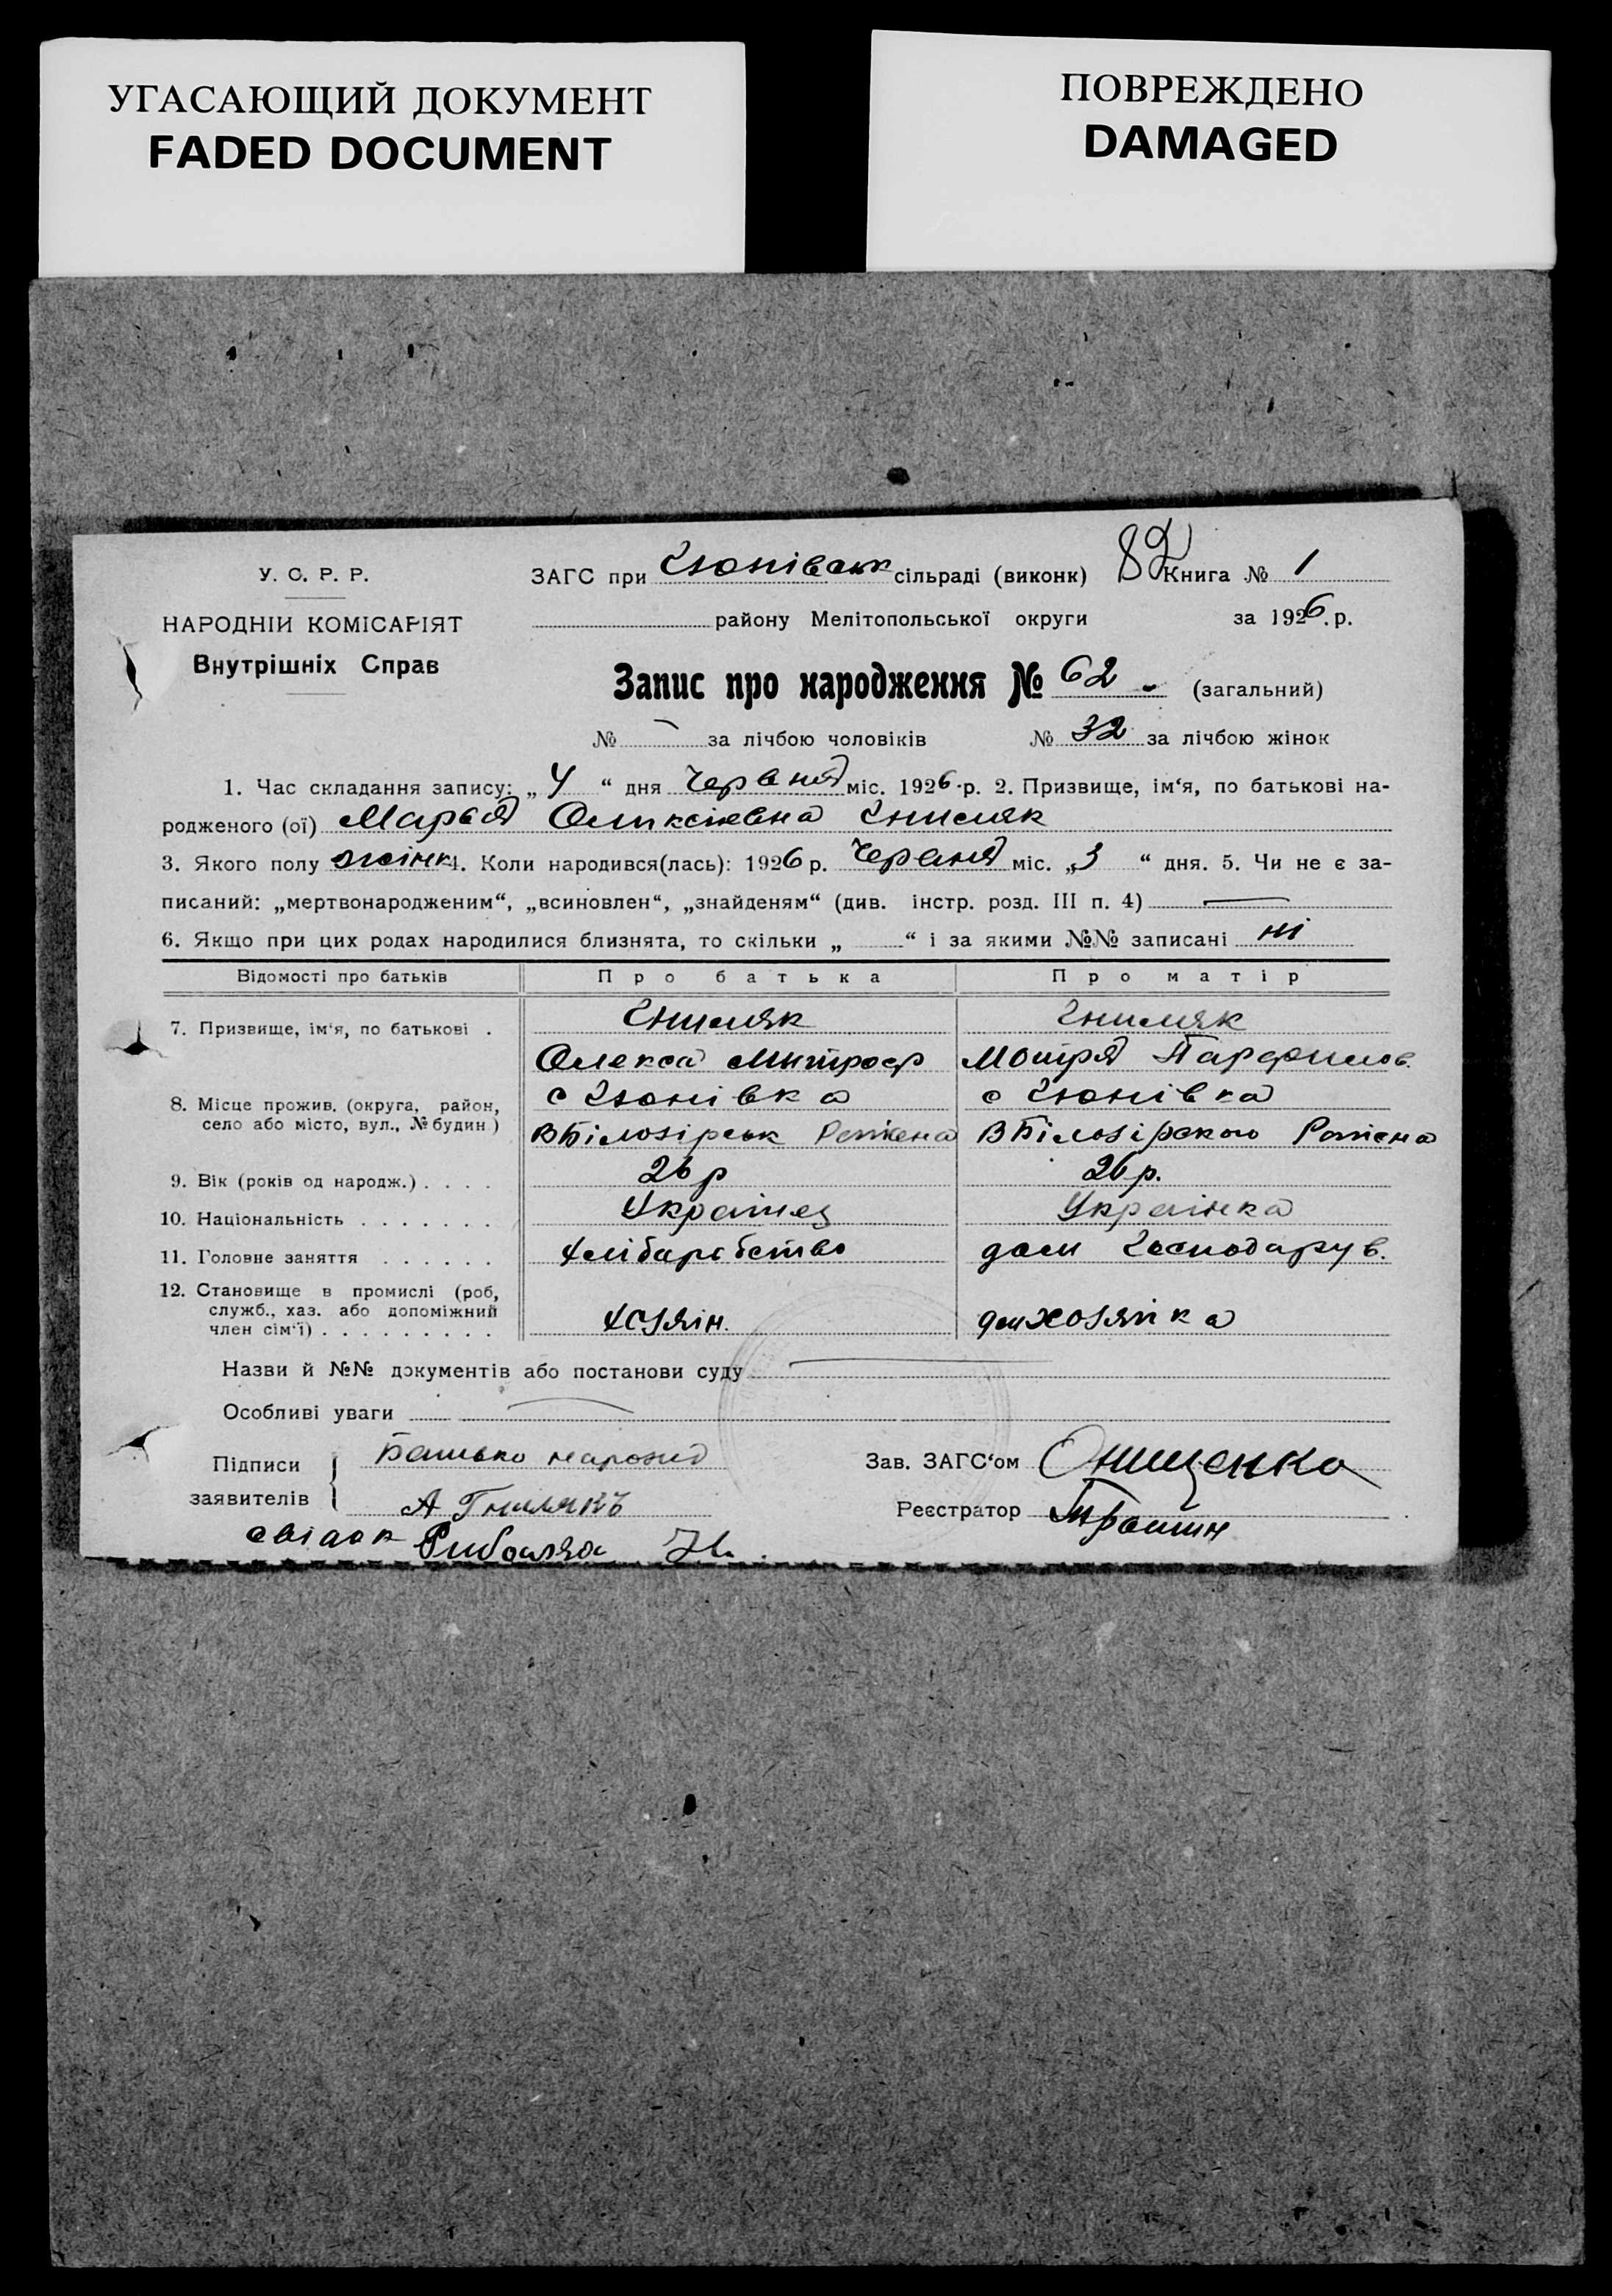 УГАСАЮЩИЙ ДОКУМЕНТ
FADED DOCUMENT
ПОВРЕЖДЕНО
DAMAGED
У. С. Р. Р.
НАРОДНІЙ КОМІСАРІЯТ
Внутрішніх Справ
ЗАГС при сільраді (виконк) 82 Книга № 1
району Мелітопольської округи за 1926.р.
Запис про народження № 62 - (загальний)
№ за лічбою чоловіків № 32 за лічбою жінок
1. Час складання запису: „ 4 “ дня Червня міс. 1926.р. 2. Призвище, ім‘я, по батькові на-
родженого (ої) Марья Оликсіївна Гниляк
3. Якого полу жінк 4. Коли народився(лась): 1926 р. Червня міс. „ 3 “ дня. 5. Чи не є за-
писаний: „мертвонародженим“, „всиновлен“, „знайденям“ (див. інстр. розд. III п. 4) —
6. Якщо при цих родах народилися близнята, то скільки „ “ і за якими №№ записані ні
Відомості про батьків Про батька Про матір
7. Призвище, ім‘я, по батькові . Гниляк Гниляк
Олекса Митроф Мотря Парфилов.
8. Місце прожив. (округа, район, с с
село або місто, вул., № будин.) ВБілозірськ ВБілозірского
9. Вік (років од народж.) . . . . 26 р 26 р.
10. Національність . . . . . . . Українец Українка
11. Головне заняття . . . . . . хліборобство дом господарув.
12. Становище в промислі (роб,
служб., хаз. або допоміжний
член сім‘ї) . . . . . . . . . хозяін. дом хозяйка
Назви й №№ документів або постанови суду —
Особливі уваги —
Підписи Батько Зав. ЗАГС‘ом Онищенко
заявителів А Гнилякъ Реєстратор
свідок